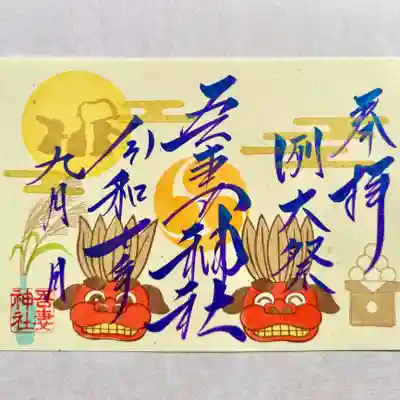 奉拝
例大祭
吾妻神社
令和年
九月
吾妻
神社